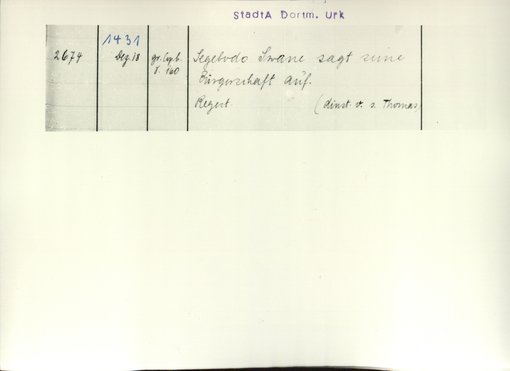 StadtA Dortm. Urk
1431
2674 Dez. 18 gr. Cpb. S. 160 Segebodo Swane sagt seine
Bürgerschaft auf.
Regest (dinst. v. s. Thomas)